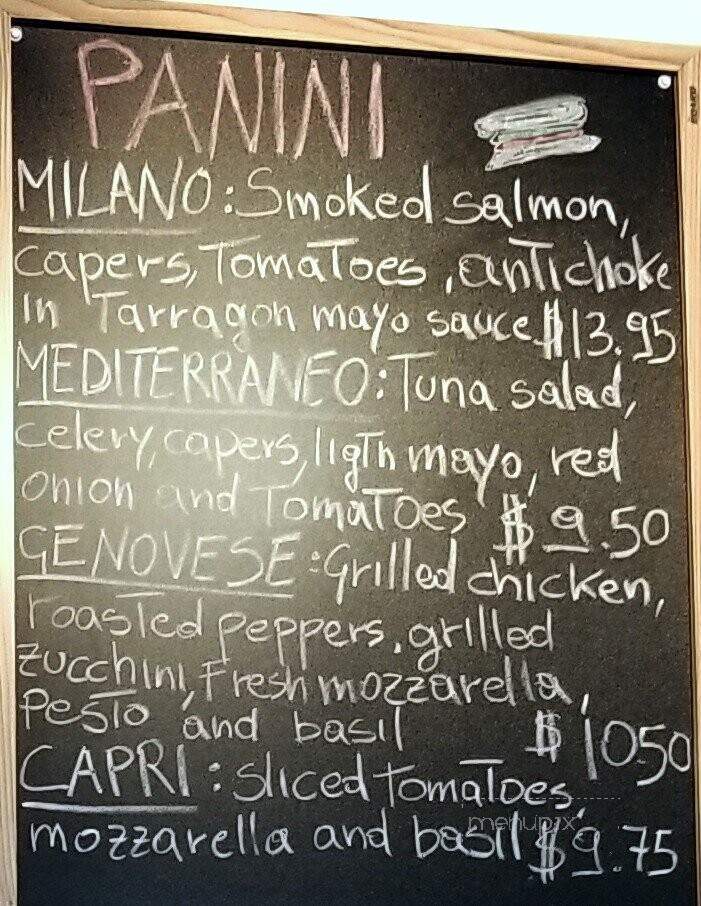 PANINI
MILANO: Smoked salmon,
capers, Tomatoes, antichoke
in Tarragon mayo sauce $13.95
MEDITERRANEO: Tuna salad,
celery, capers, ligth mayo, red
onion and Tomatoes $9.50
GENOVESE: Grilled chicken,
roasted peppers, grilled
zucchini, Fresh mozzarella,
Pesto and basil $1050
CAPRI: sliced tomatoes,
menupix
mozzarella and basil $9.75